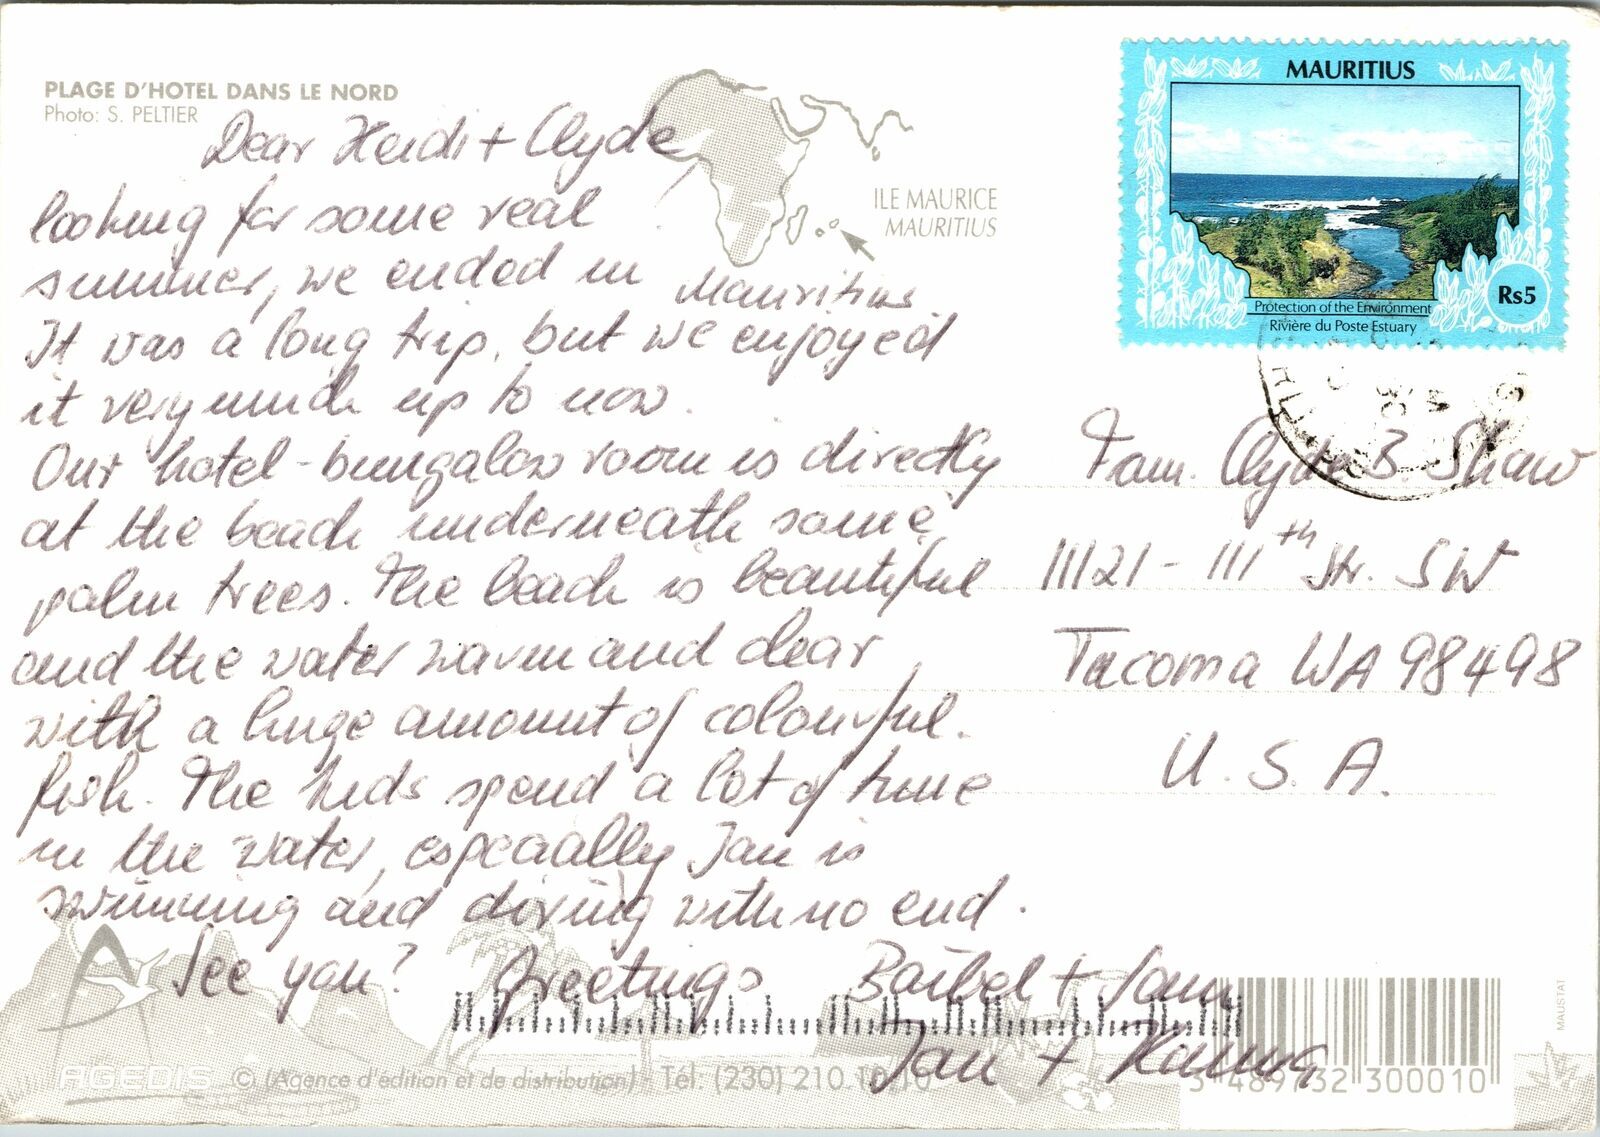 PLAGE D'HOTEL DANS LE NORD
Photo: S. PELTIER
ILE MAURICE
MAURITIUS
MAURITIUS
Rs5
Protection of the Environment
Rivière du Poste Estuary
Dear Heidi + Clyde
looking for some real
summer, we ended in Mauritius
It was a long trip, but we enjoyed
it very much up to now.
Our hotel-bungalow room is directly
at the beach underneath some
palm trees. The beach is beautiful
and the water warm and clear,
with a huge amount of colourful
fish. The kids spend a lot of time
in the water, especially Jan is
swimming and diving with no end.
See you? Greetings Bärbel +
Jan + Hanna
Fam. Clyde B. Shaw
11121 - 111th Str. SW
Tacoma WA 98498
U.S.A.
AGEDIS © (Agence d'édition et de distribution) - Tél: (230) 210 10 10
MAUSTAT